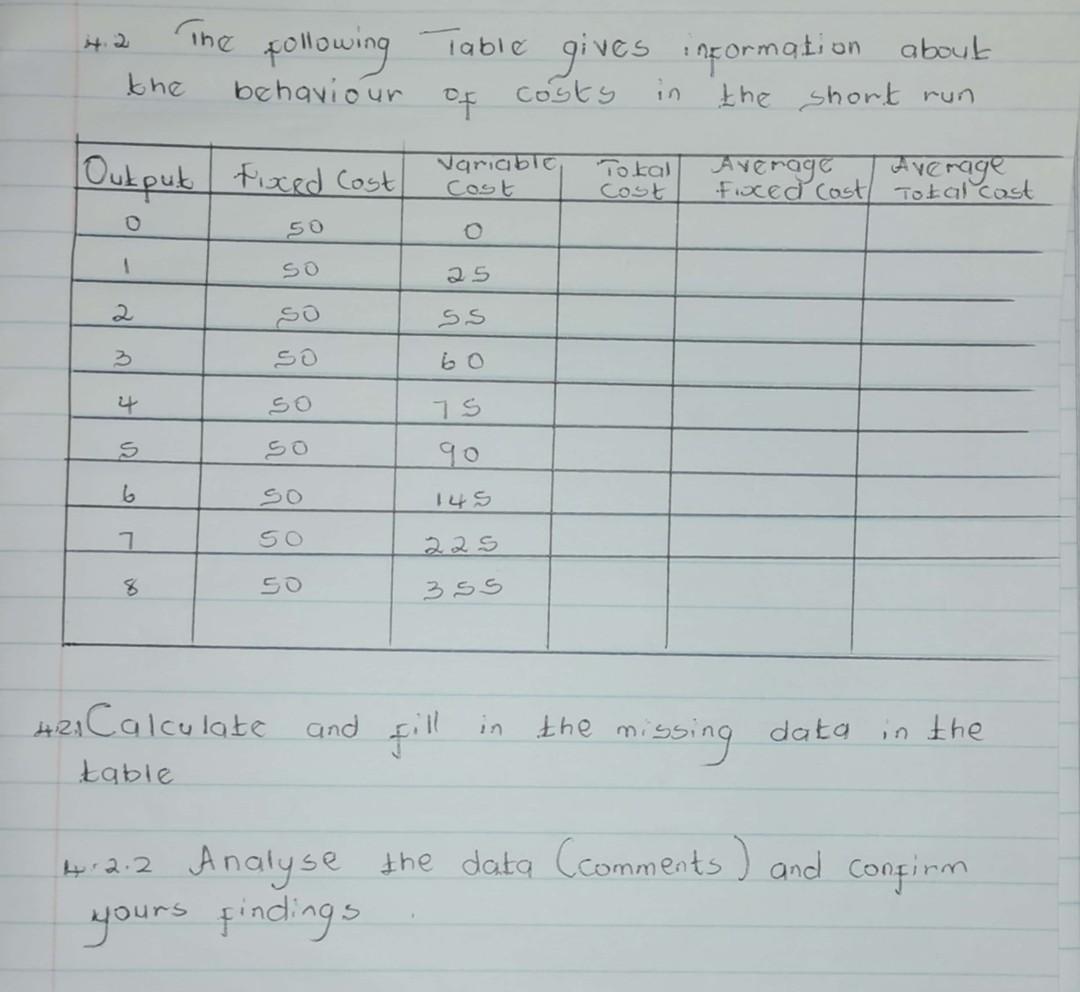 4.2 The following Table gives information about
the behaviour of costs in the short run
Output Fixed Cost Variable Cost Total Cost Average Fixed Cost Average Total Cost
0 50 0
1 50 25
2 50 55
3 50 60
4 50 75
5 50 90
6 50 145
7 50 225
8 50 355
4.2.1 Calculate and fill in the missing data in the
table
4.2.2 Analyse the data (comments) and confirm
yours findings.